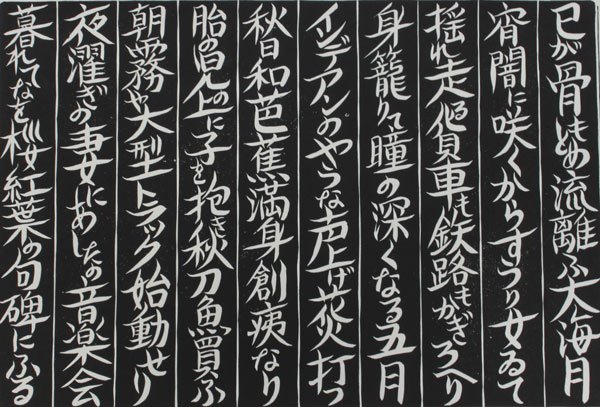 己が骨もあめ流離ふ大海月
宵闇に咲くからすうり女ゐて
揺れ走る貨車も鉄路もかぎろへり
身籠りて瞳の深くなる五月
インデアンのやうな声上げ花火打つ
秋日和芭蕉満身創痍なり
胎の児の上に子を抱き秋刀魚買ふ
朝霧や大型トラック始動せり
夜濯ぎの妻にあしたの音楽会
暮れてなを桜紅葉の句碑にふる